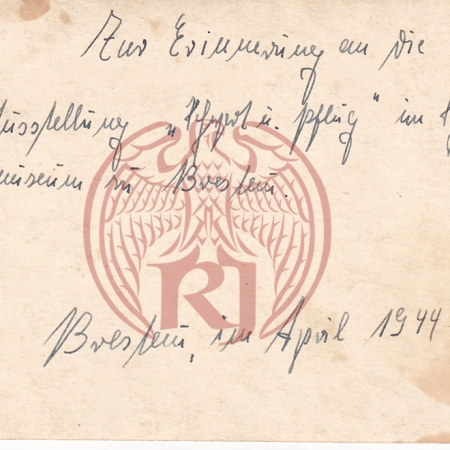 Zur Erinnerung an die
Ausstellung „Schwert u. Pflug“ im
museum zu Breslau.
RJ
Breslau, im April 1944